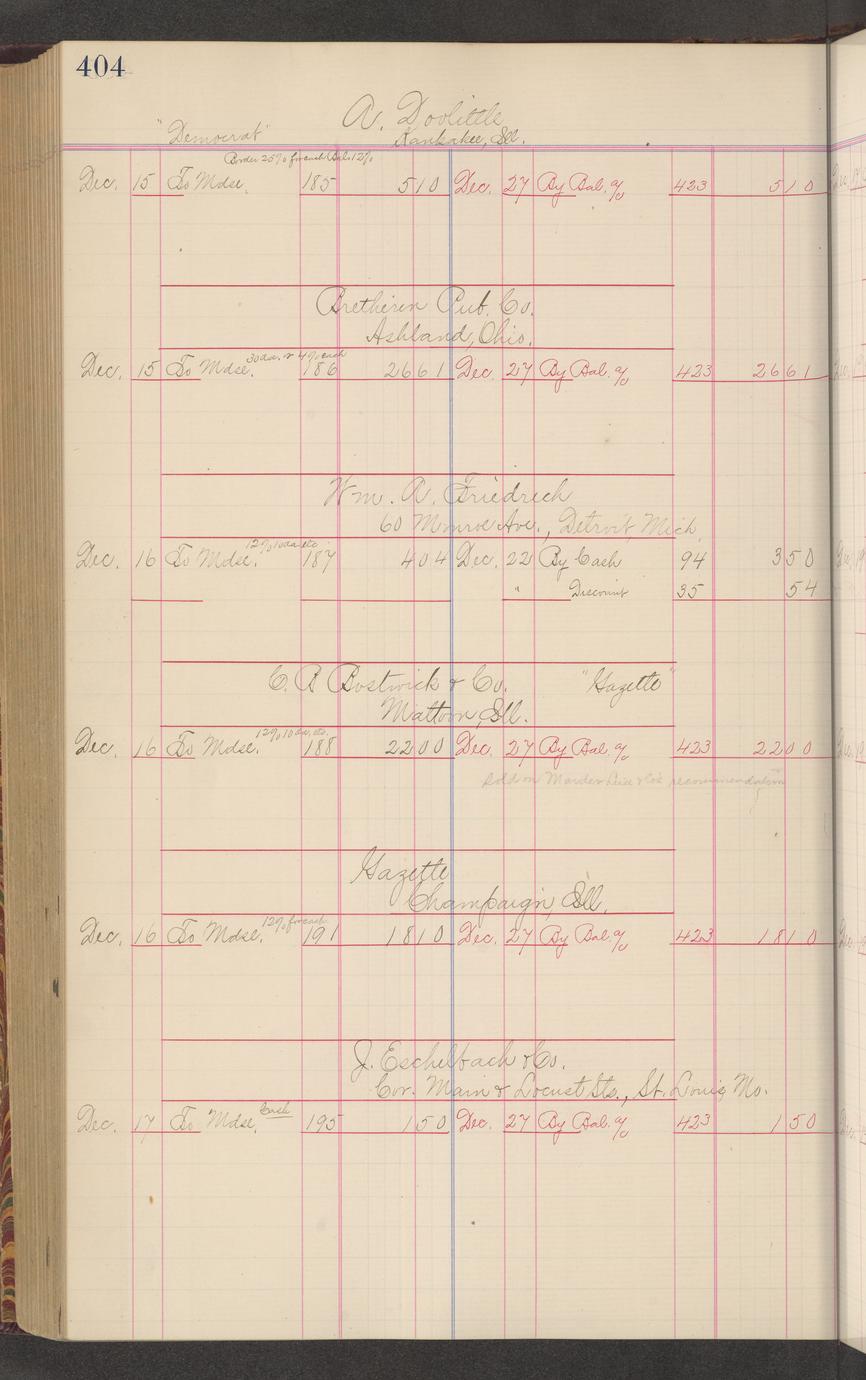 404
A. Doolittle
"Democrat" Kankakee, Ill.
Border 25% for cash Bal. 12%
Dec. 15 To Mdse. 185 5 10 Dec. 27 By Bal. a/c 423 5 10
Bretheren Pub. Co.
Ashland, Ohio.
30 da. or 4% cash
Dec. 15 To Mdse. 186 26 61 Dec. 27 By Bal. a/c 423 26 61
Wm. A. Friedrich
60 Monroe Ave., Detroit, Mich.
12% 10 da. etc.
Dec. 16 To Mdse. 187 4 04 Dec. 22 By Cash 94 3 50
" Discount 35 54
C. B Bostwick & Co. "Gazette"
Mattoon, Ill.
12% 10 da. etc.
Dec. 16 To Mdse. 188 22 00 Dec. 27 By Bal. a/c 423 22 00
Sold on Marder Luse & Co's recommendation
Gazette
Champaign, Ill.
12% for cash
Dec. 16 To Mdse. 191 18 10 Dec. 27 By Bal. a/c 423 18 10
J. Eschelbach & Co.
Cor. Main & Locust Sts., St. Louis, Mo.
Cash
Dec. 17 To Mdse. 195 1 50 Dec. 27 By Bal. a/c 423 1 50